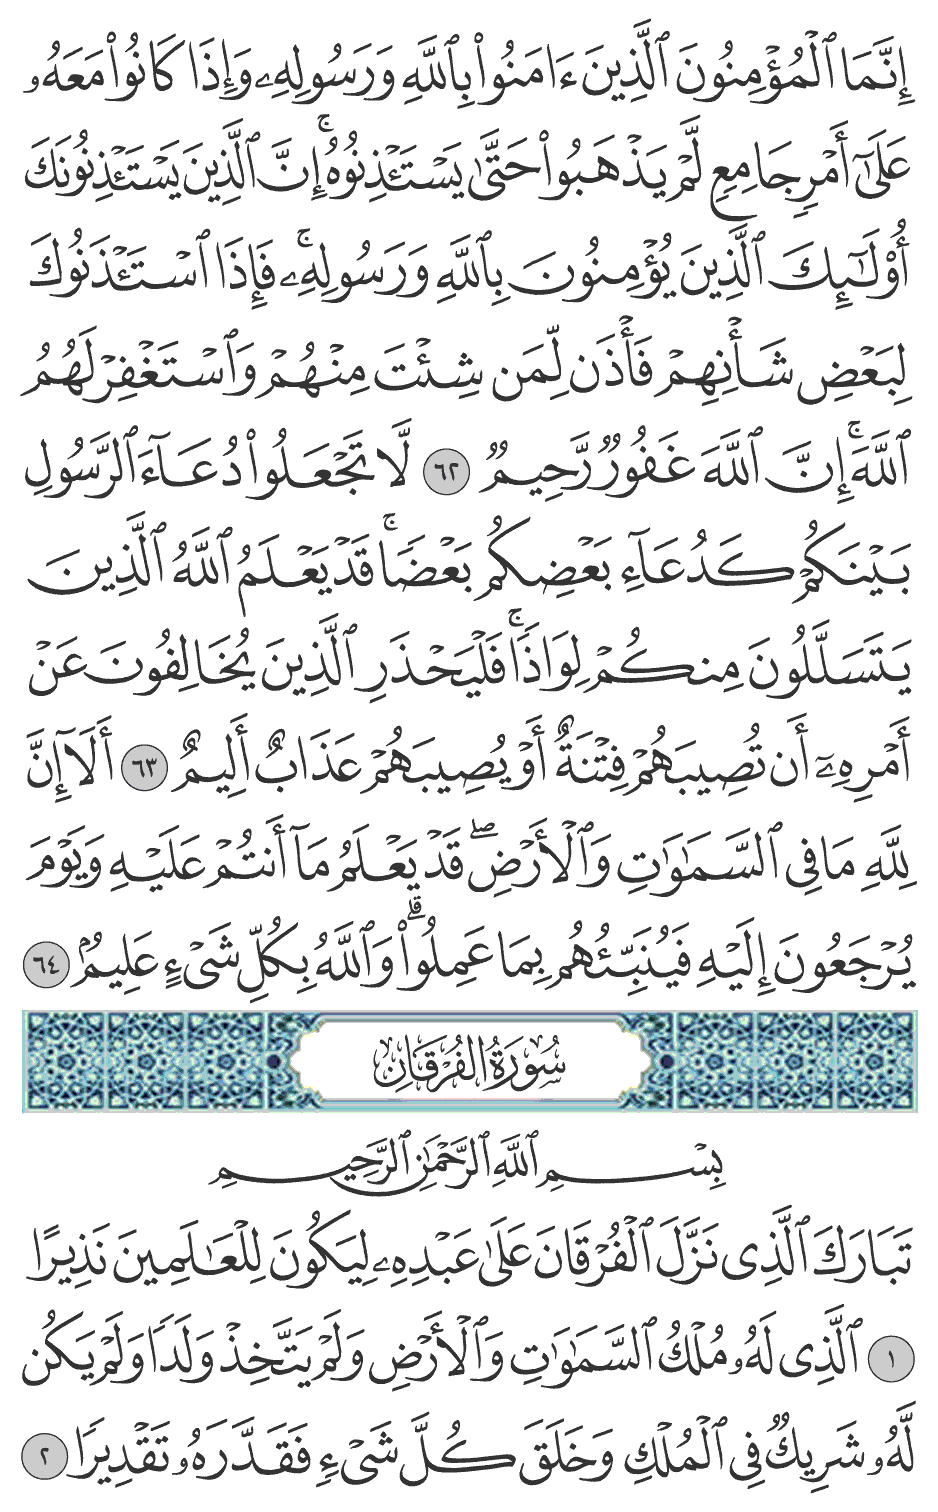 إِنَّمَا ٱلْمُؤْمِنُونَ ٱلَّذِينَ ءَامَنُوا۟ بِٱللَّهِ وَرَسُولِهِۦ وَإِذَا كَانُوا۟ مَعَهُۥ
عَلَىٰٓ أَمْرٍ جَامِعٍ لَّمْ يَذْهَبُوا۟ حَتَّىٰ يَسْتَـْٔذِنُوهُ ۚ إِنَّ ٱلَّذِينَ يَسْتَـْٔذِنُونَكَ
أُو۟لَـٰٓئِكَ ٱلَّذِينَ يُؤْمِنُونَ بِٱللَّهِ وَرَسُولِهِۦ ۚ فَإِذَا ٱسْتَـْٔذَنُوكَ
لِبَعْضِ شَأْنِهِمْ فَأْذَن لِّمَن شِئْتَ مِنْهُمْ وَٱسْتَغْفِرْ لَهُمُ
ٱللَّهَ ۚ إِنَّ ٱللَّهَ غَفُورٌ رَّحِيمٌ ٦٢ لَّا تَجْعَلُوا۟ دُعَآءَ ٱلرَّسُولِ
بَيْنَكُمْ كَدُعَآءِ بَعْضِكُم بَعْضًا ۚ قَدْ يَعْلَمُ ٱللَّهُ ٱلَّذِينَ
يَتَسَلَّلُونَ مِنكُمْ لِوَاذًا ۚ فَلْيَحْذَرِ ٱلَّذِينَ يُخَالِفُونَ عَنْ
أَمْرِهِۦٓ أَن تُصِيبَهُمْ فِتْنَةٌ أَوْ يُصِيبَهُمْ عَذَابٌ أَلِيمٌ ٦٣ أَلَآ إِنَّ
لِلَّهِ مَا فِى ٱلسَّمَـٰوَٰتِ وَٱلْأَرْضِ ۖ قَدْ يَعْلَمُ مَآ أَنتُمْ عَلَيْهِ وَيَوْمَ
يُرْجَعُونَ إِلَيْهِ فَيُنَبِّئُهُم بِمَا عَمِلُوا۟ ۗ وَٱللَّهُ بِكُلِّ شَىْءٍ عَلِيمٌۢ ٦٤
سُورَةُ الفُرْقَانِ
بِسْمِ ٱللَّهِ ٱلرَّحْمَـٰنِ ٱلرَّحِيمِ
تَبَارَكَ ٱلَّذِى نَزَّلَ ٱلْفُرْقَانَ عَلَىٰ عَبْدِهِۦ لِيَكُونَ لِلْعَـٰلَمِينَ نَذِيرًا
١ ٱلَّذِى لَهُۥ مُلْكُ ٱلسَّمَـٰوَٰتِ وَٱلْأَرْضِ وَلَمْ يَتَّخِذْ وَلَدًا وَلَمْ يَكُن
لَّهُۥ شَرِيكٌ فِى ٱلْمُلْكِ وَخَلَقَ كُلَّ شَىْءٍ فَقَدَّرَهُۥ تَقْدِيرًا ٢